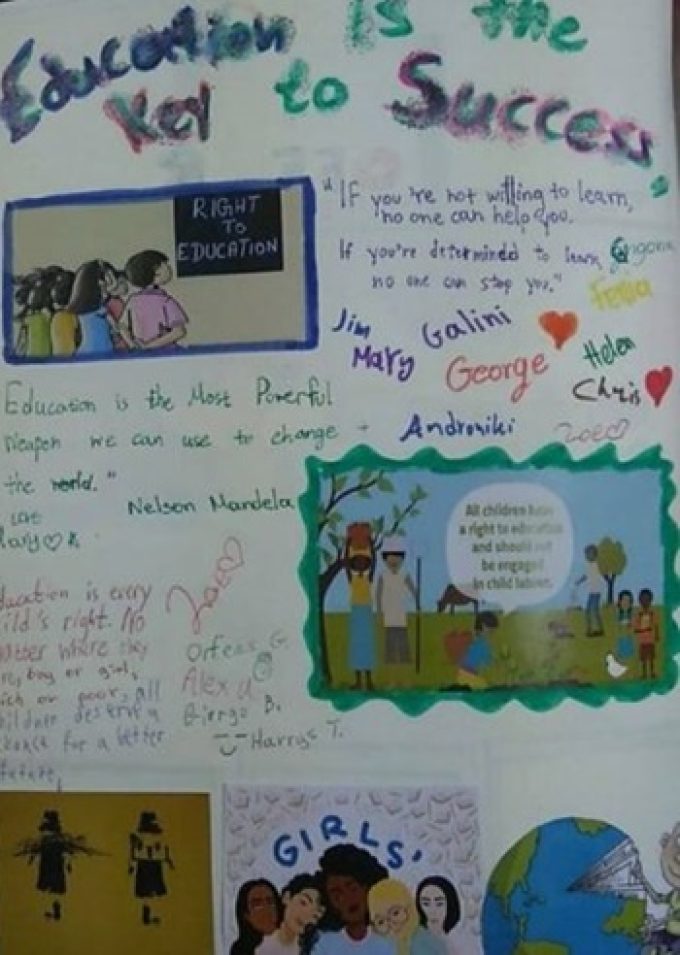 Education is the
Key to Success
RIGHT
TO
EDUCATION
"If you're not willing to learn,
no one can help you.
If you're determined to learn,
no one can stop you."
Jim
Galini
Mary
George
Helen
Chris
Androniki
Zoe
Education is the Most Powerful
weapon we can use to change
the world."
Nelson Mandela
All children have
a right to education
and should not
be engaged
in child labour.
Education is every
child's right. No
matter where they
boy or girl,
rich or poor, all
children deserve a
chance for a better
future.
Zoe
Orfeas G.
Alex
B.
Harrys T.
GIRLS'